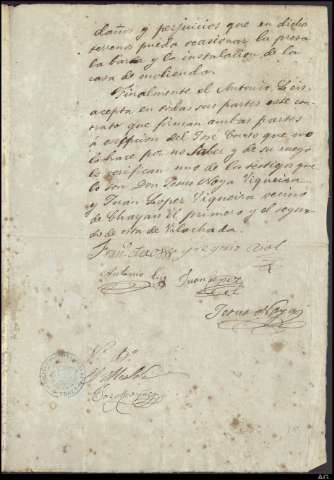 daños y perjuicios que en dicho
terreno pueda ocasionar la presa
la balsa y la instalacion de la
casa de moliendar.
Finalmente el Antonio Leis,
acepta en todas sus partes este con-
trato que firman ambas partes
á escepcion del José Curto que no
lo hace por no saber y de su ruego
lo verifican uno de los testigos que
lo son Don Jesus Noya Viqueira
y Juan Lopez Viqueira vecino
de Chayan el primero y el segun-
do de esta de Vilochada.
Antonio Leis Juan Lopez
Jesus Noya
Vº Bº
El Alcalde
AG